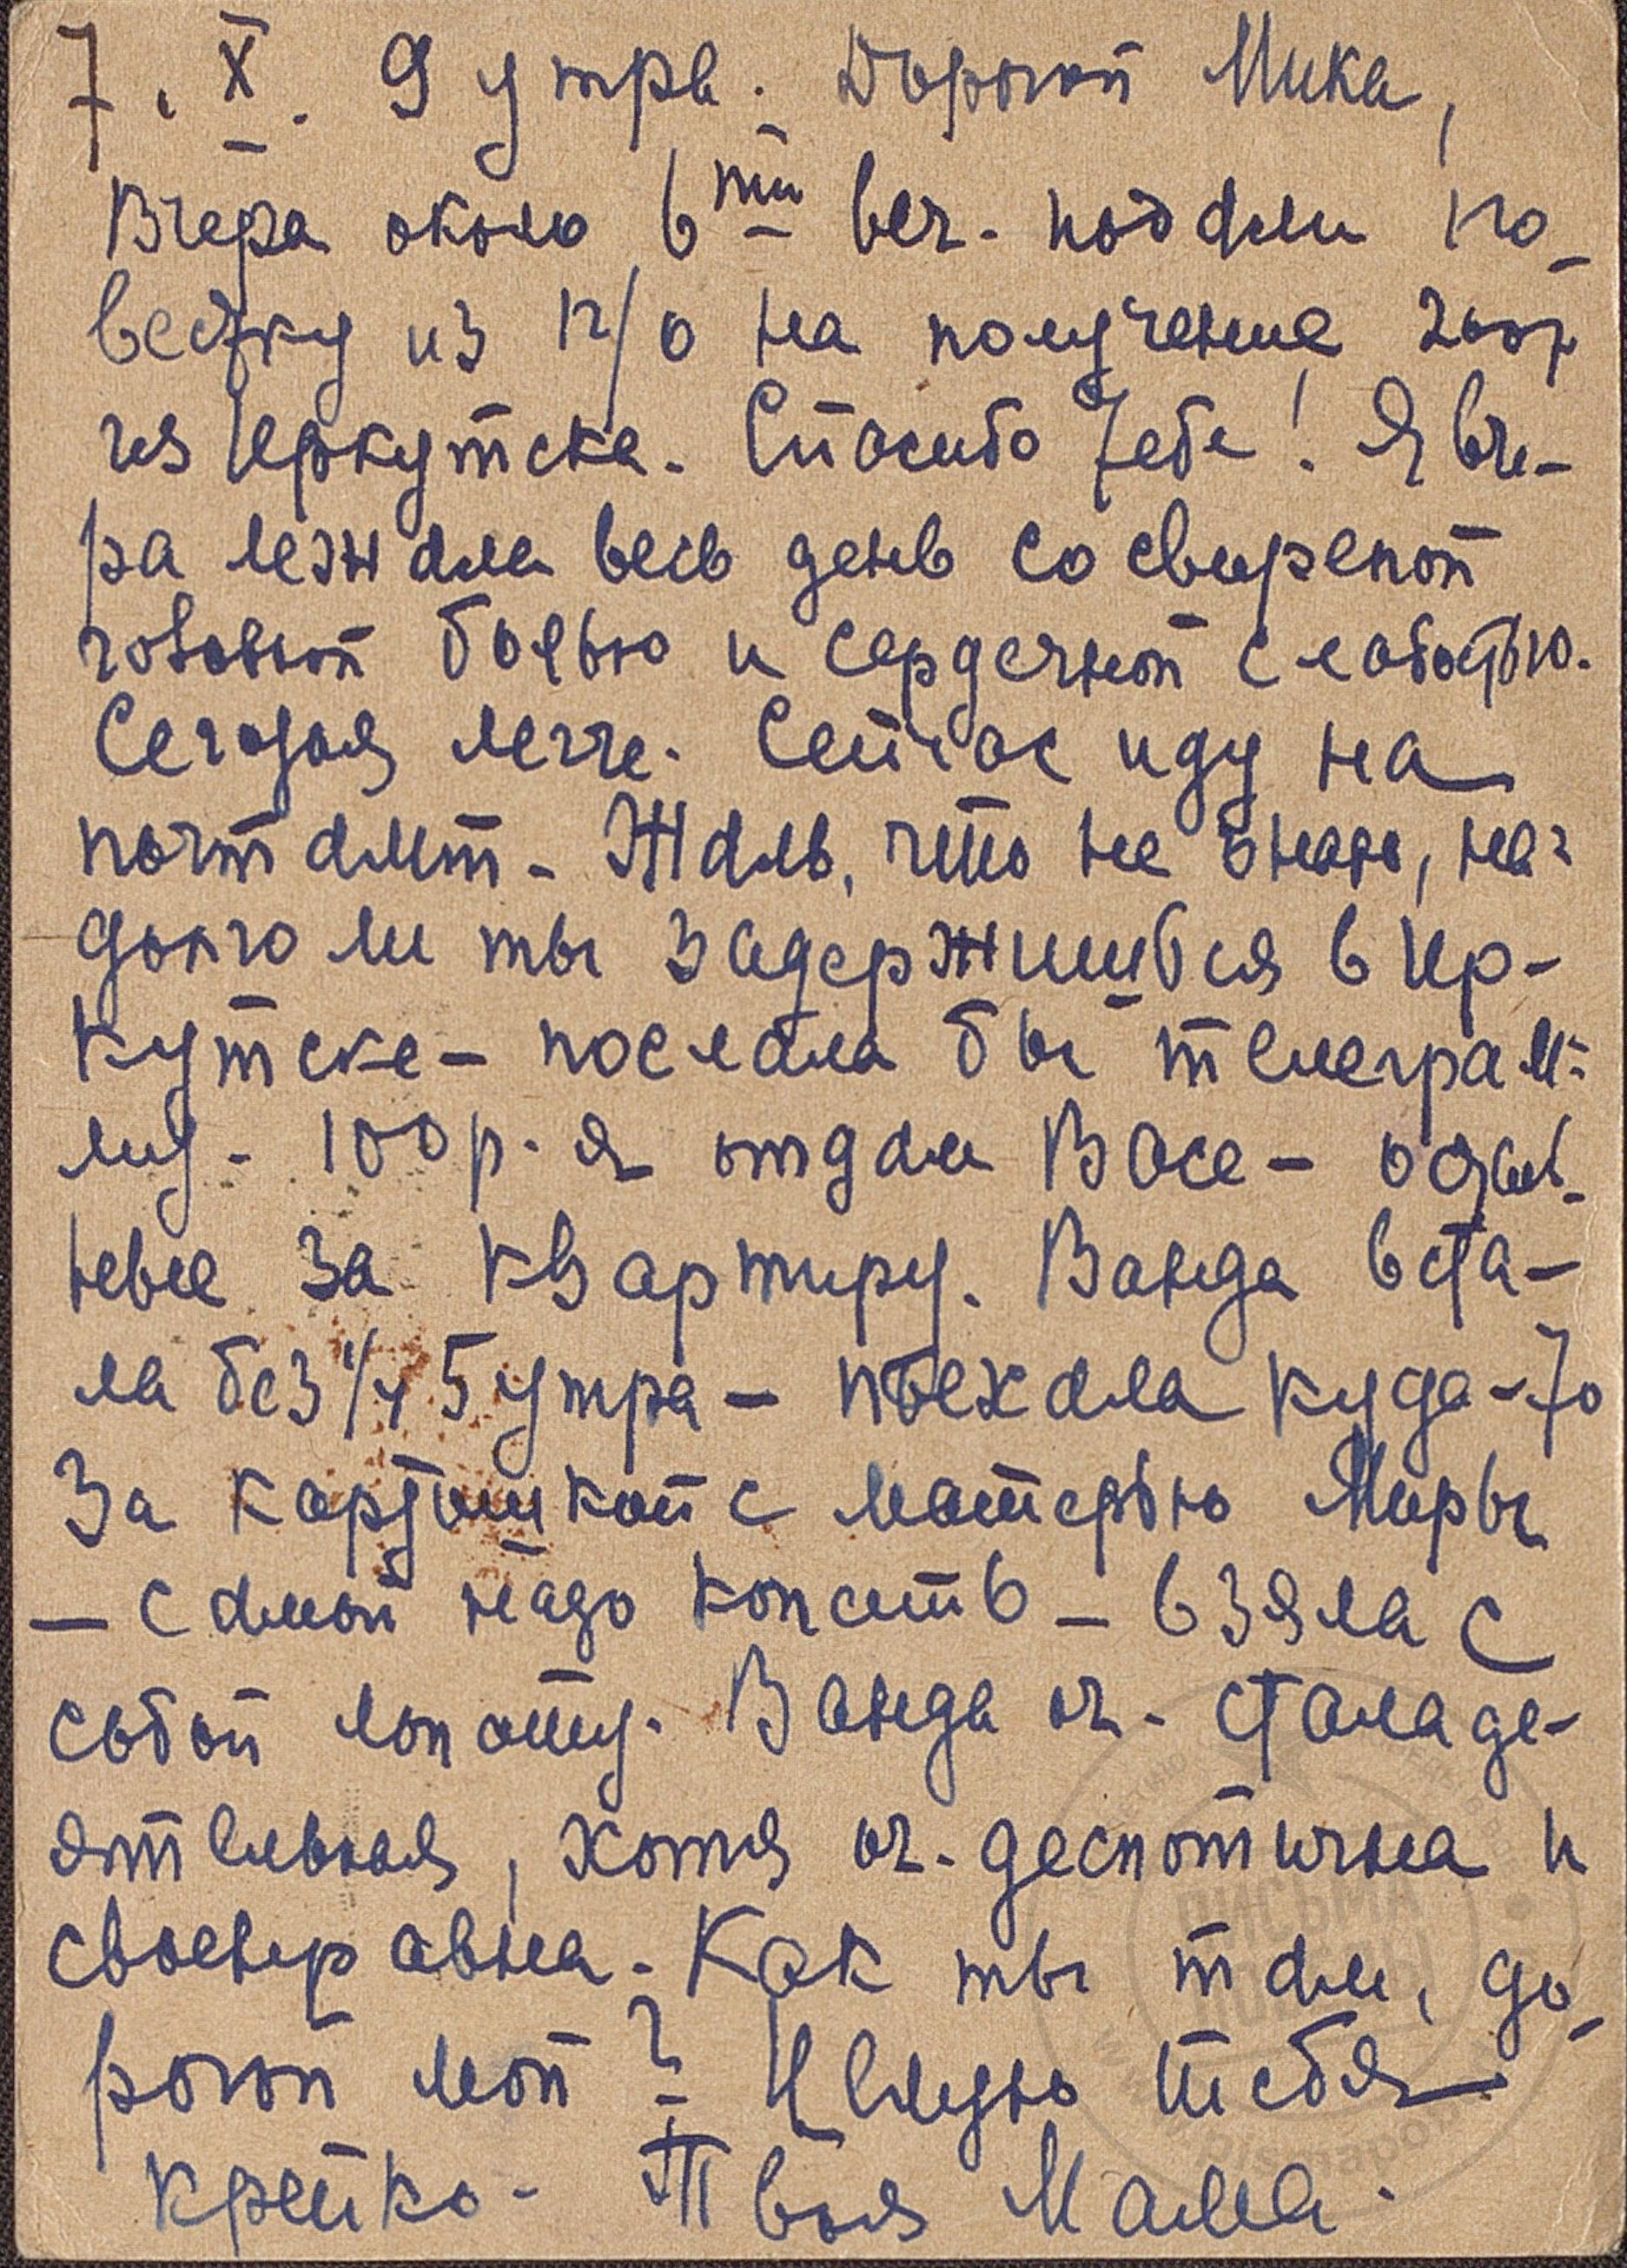 7.X. 9 утра. Дорогой Мика,
Вчера около 6ти веч. подали по-
вестку из п/о на получение 200р
из Иркутска. Спасибо тебе! Я вче-
ра лежала весь день со свирепой
головной болью и сердечной слабостью.
Сегодня легче. Сейчас иду на
почтамт. Жаль, что не знаю, на-
долго ли ты задержишься в Ир-
кутске - послала бы телеграм-
му. 100р. я отдам Васе -
за квартиру. Ванда вста-
ла без 1/4 5 утра - поехала куда-то
за картошкой с матерью Миры
- самой надо копать - взяла с
собой лопату. Ванда оч. стала де-
ятельная, хотя оч. деспотична и
своенравна. Как ты там, до-
рогой мой? Целую тебя
крепко. Твоя Мама.
ПИСЬМА
ПОБЕДЫ